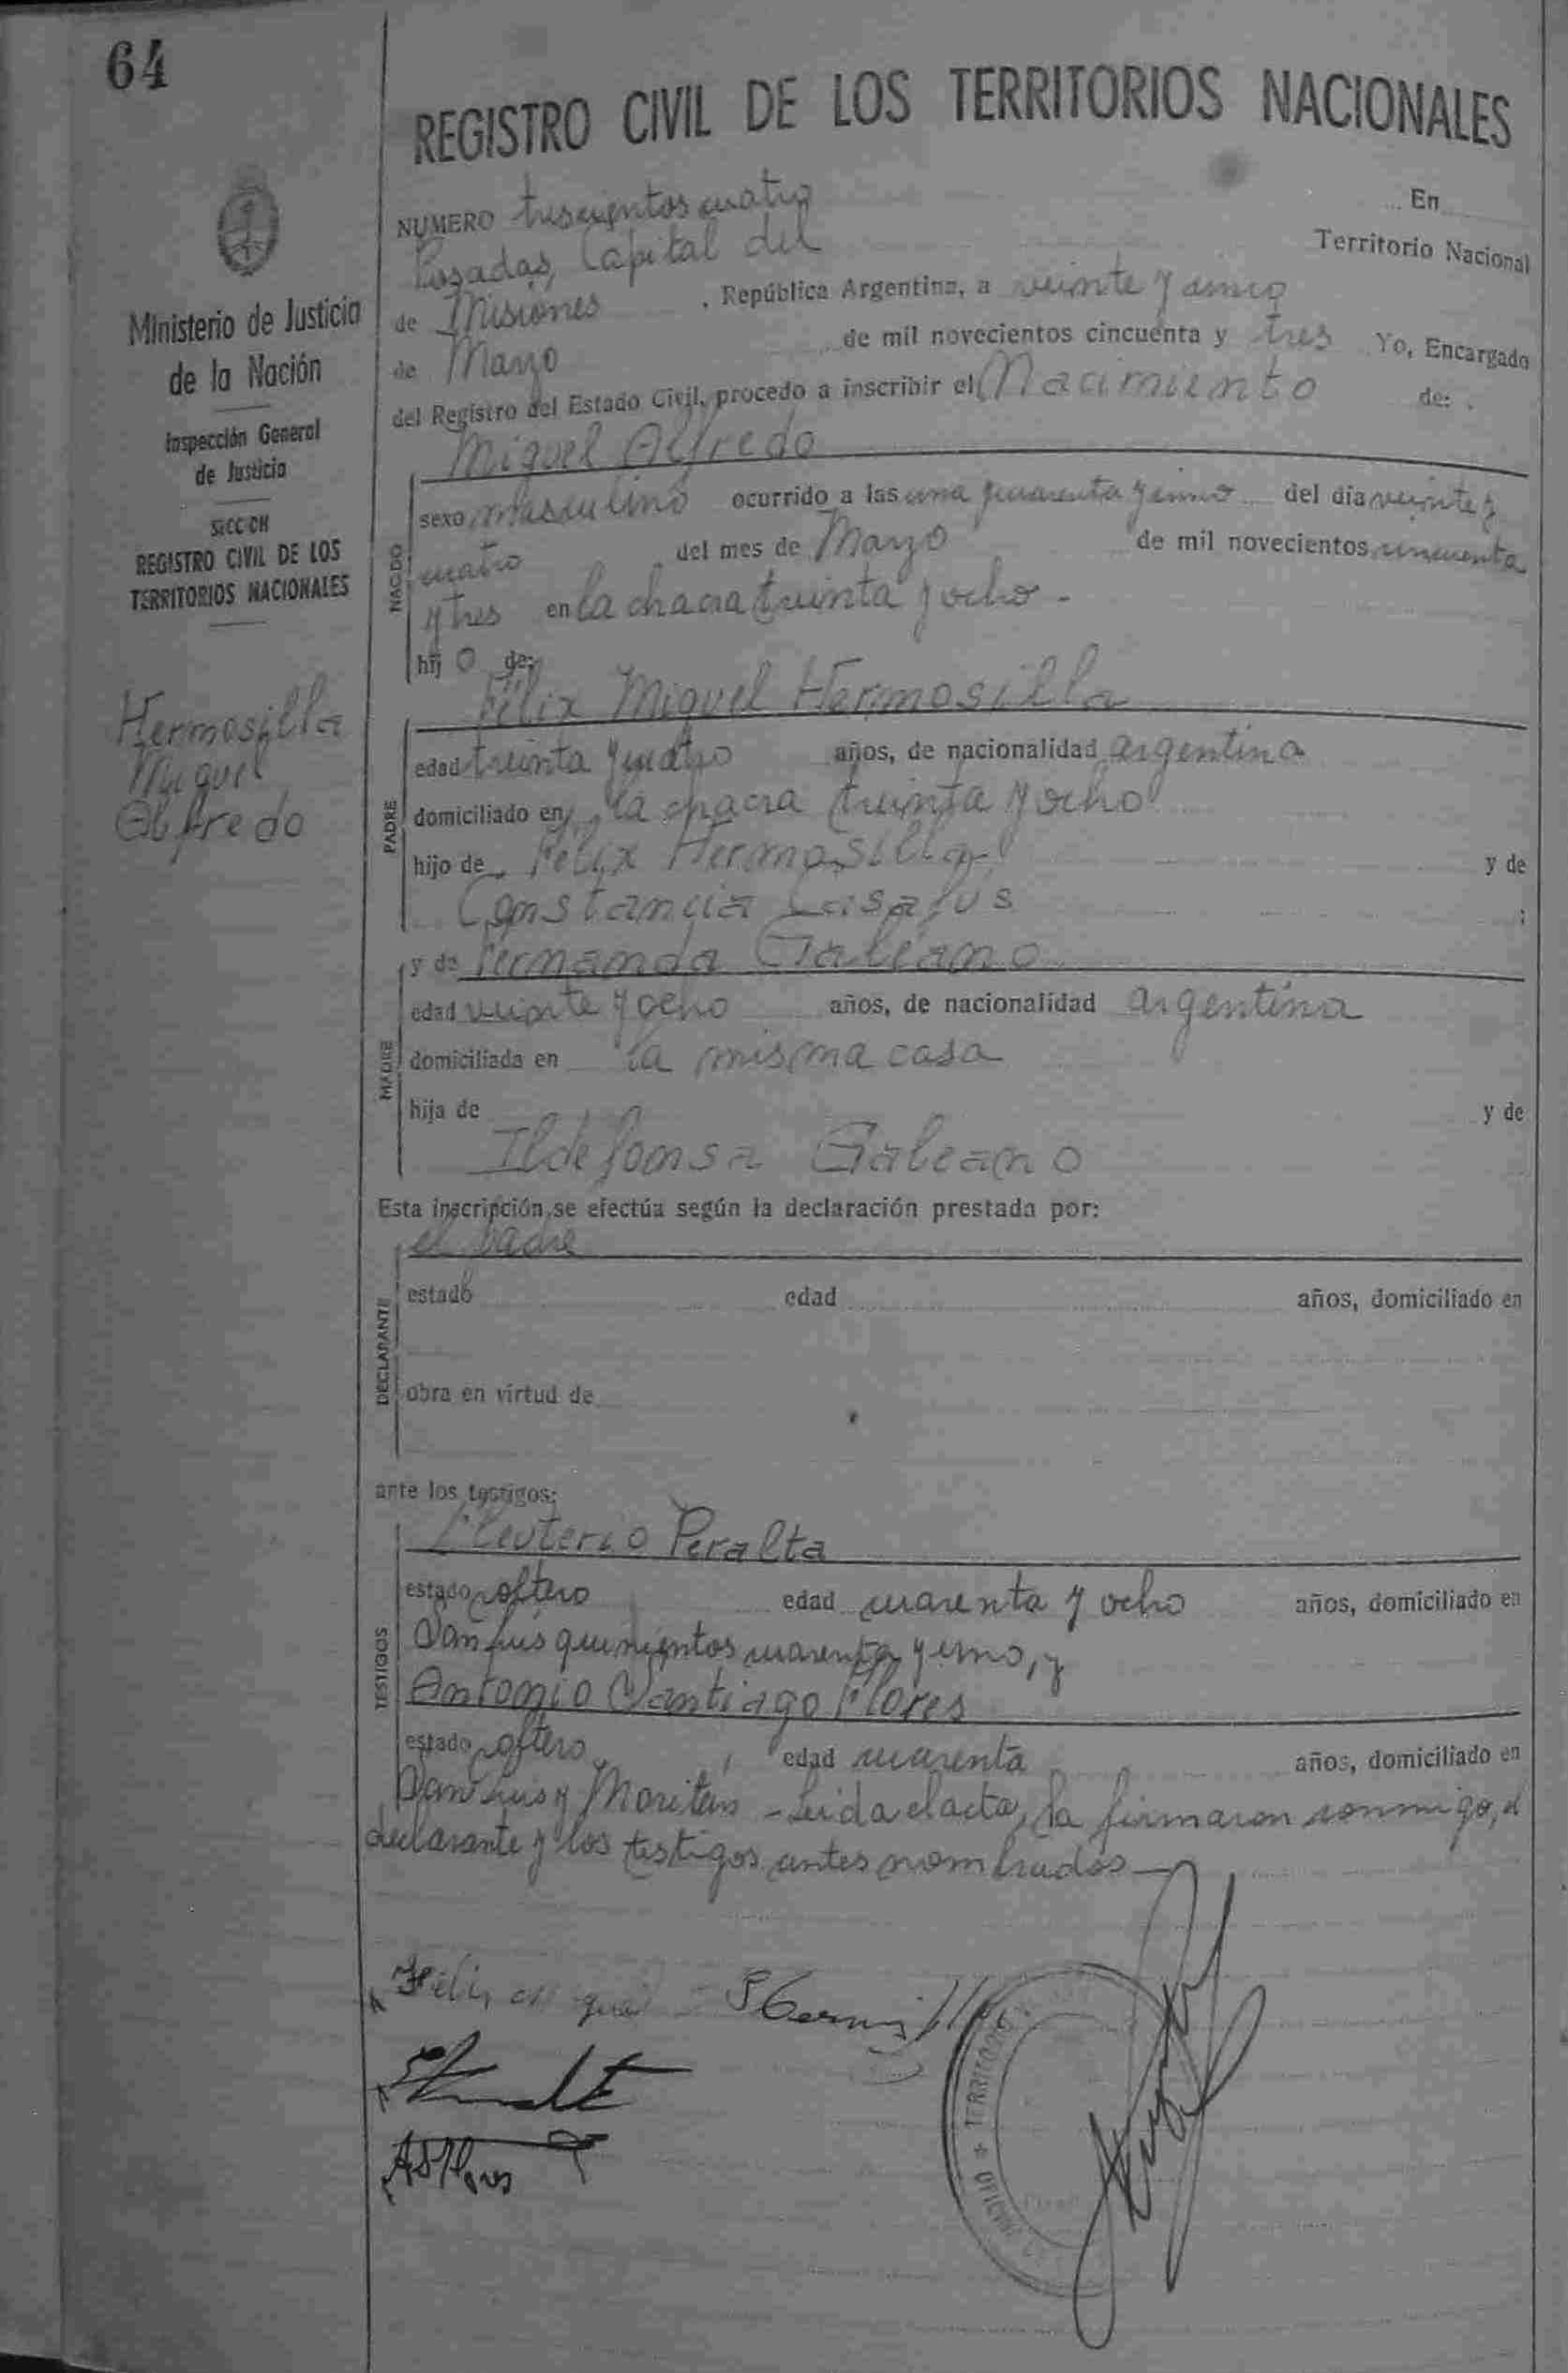 64
REGISTRO CIVIL DE LOS TERRITORIOS NACIONALES
Ministerio de Justicia
de la Nación
Inspección General
de Justicia
SECCION
REGISTRO CIVIL DE LOS
TERRITORIOS NACIONALES
Hermosilla
Miguel
Alfredo
NUMERO trescientos cuatro En
Posadas, Capital del Territorio Nacional
de Misiones , República Argentina, a veinte y cinco
de Marzo de mil novecientos cincuenta y tres Yo, Encargado
del Registro del Estado Civil, procedo a inscribir el Nacimiento de:
Miguel Alfredo
NACIDO
sexo masculino ocurrido a las una y cuarenta y cinco del día veinte y
cuatro del mes de Marzo de mil novecientos cincuenta
y tres en la chacra treinta y ocho.-
hij o de:
Félix Miguel Hermosilla
PADRE
edad treinta y cuatro años, de nacionalidad argentina
domiciliado en la chacra treinta y ocho
hijo de Félix Hermosilla y de
Constancia Casafús ;
y de Fernanda Galeano
MADRE
edad veinte y ocho años, de nacionalidad argentina
domiciliada en la misma casa
hija de y de
Ildefonsa Galeano
Esta inscripción se efectúa según la declaración prestada por:
el padre
DECLARANTE
estado edad años, domiciliado en
obra en virtud de
ante los testigos:
Eleuterio Peralta
TESTIGOS
estado soltero edad cuarenta y ocho años, domiciliado en
San Luis quinientos cuarenta y uno, y
Antonio Santiago Flores
estado soltero, edad cuarenta años, domiciliado en
San Luis y Moritán - Leída el acta, la firmaron conmigo, el
declarante y los testigos antes nombrados—
AS Flores
OFICINA + TERRITORIO